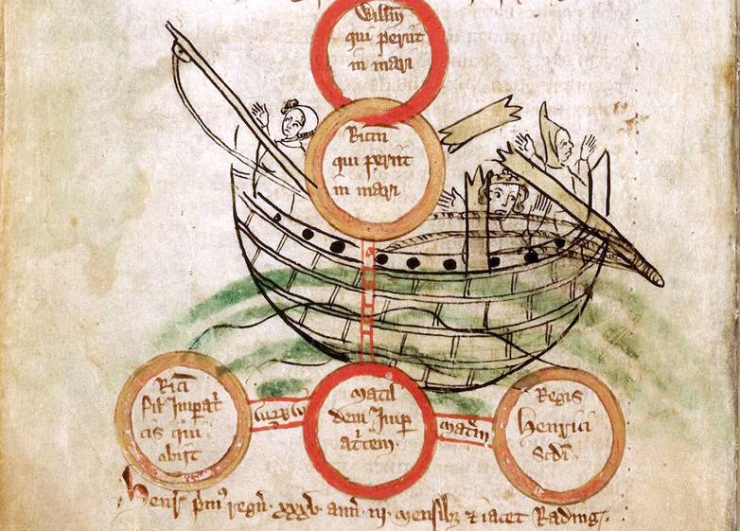 Willm
qui periit
in mari
Ricm
qui periit
in mari
Rici
fil Impat
cis qui
obiit
Matil
dem Imp
atcem
Matem
Regis
Henrici
Scdi
Henr pm regn xxxv ann iii mensibz & iacet Rading